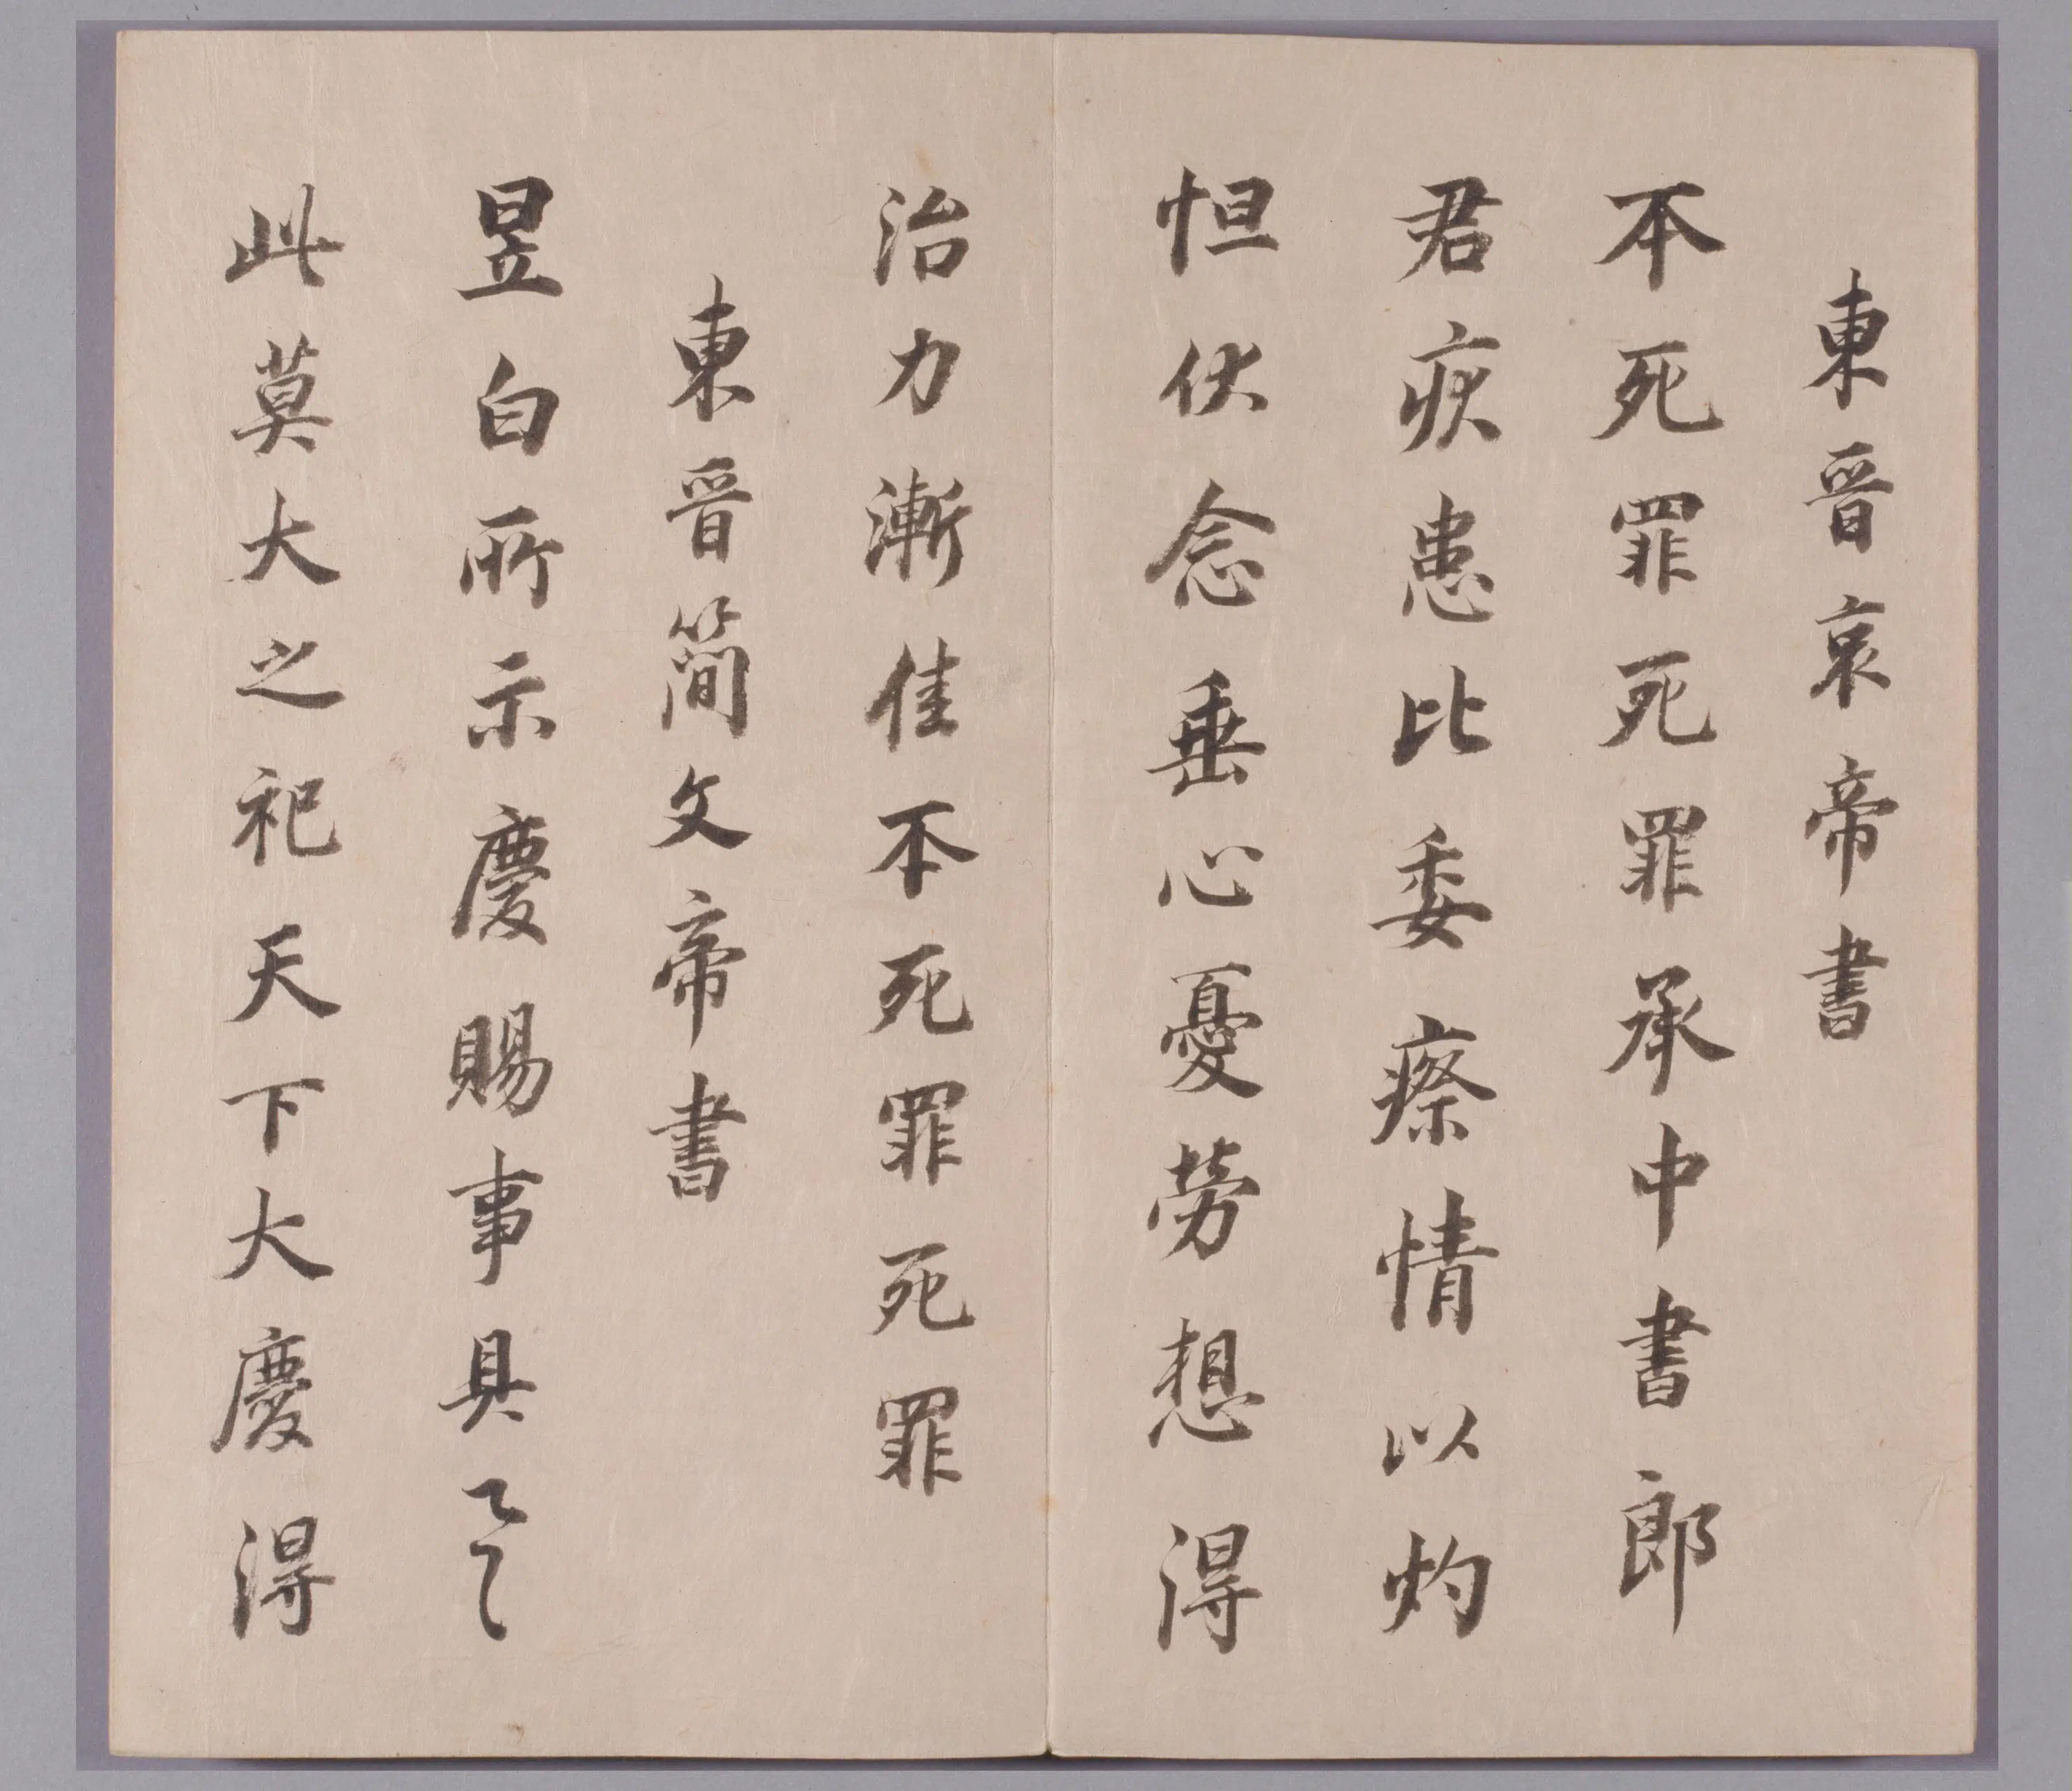 東晉哀帝書
本死罪死罪承中書郎
君疾患比委瘵情以灼
怛伏念垂心憂勞想得
治力漸佳不死罪死罪
東晉簡文帝書
昱白所示慶賜事具
此莫大之祀天下大慶得